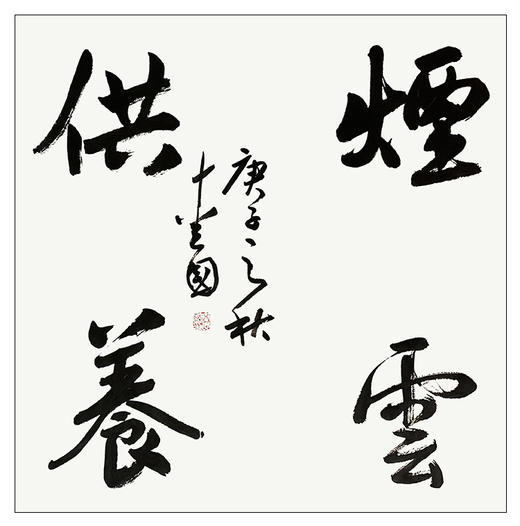 煙雲
庚子之秋
國
供養